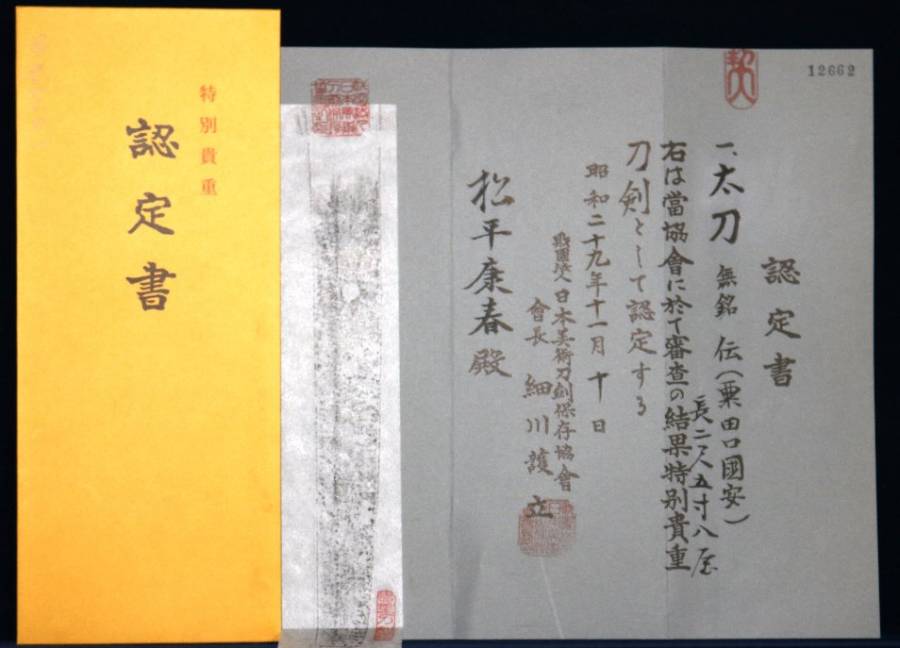 12662
認定書
一、太刀 無銘 伝(粟田口國安)
長二尺五寸八厘
右は當協會に於て審査の結果特別貴重
刀剣として認定する
昭和二十九年十一月 十 日
財團法人日本美術刀剣保存協會
會長 細川護立
松平康春殿
特別貴重
認定書